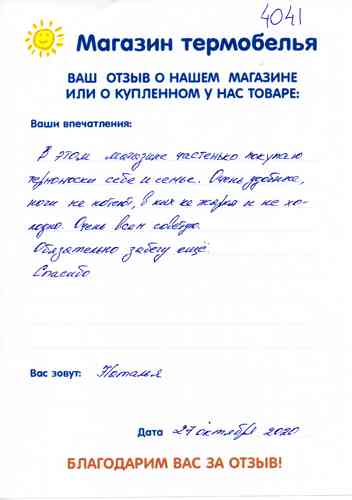 4041
Магазин термобелья
ВАШ ОТЗЫВ О НАШЕМ МАГАЗИНЕ
ИЛИ О КУПЛЕННОМ У НАС ТОВАРЕ:
Ваши впечатления:
В этом магазине частенько покупаю
термоноски себе и семье. Очень удобные,
ноги не потеют, в них не жарко и не хо-
лодно. Очень всем советую.
Обязательно забегу ещё.
Спасибо
Вас зовут: Наталья
Дата 27 октября 2020
БЛАГОДАРИМ ВАС ЗА ОТЗЫВ!